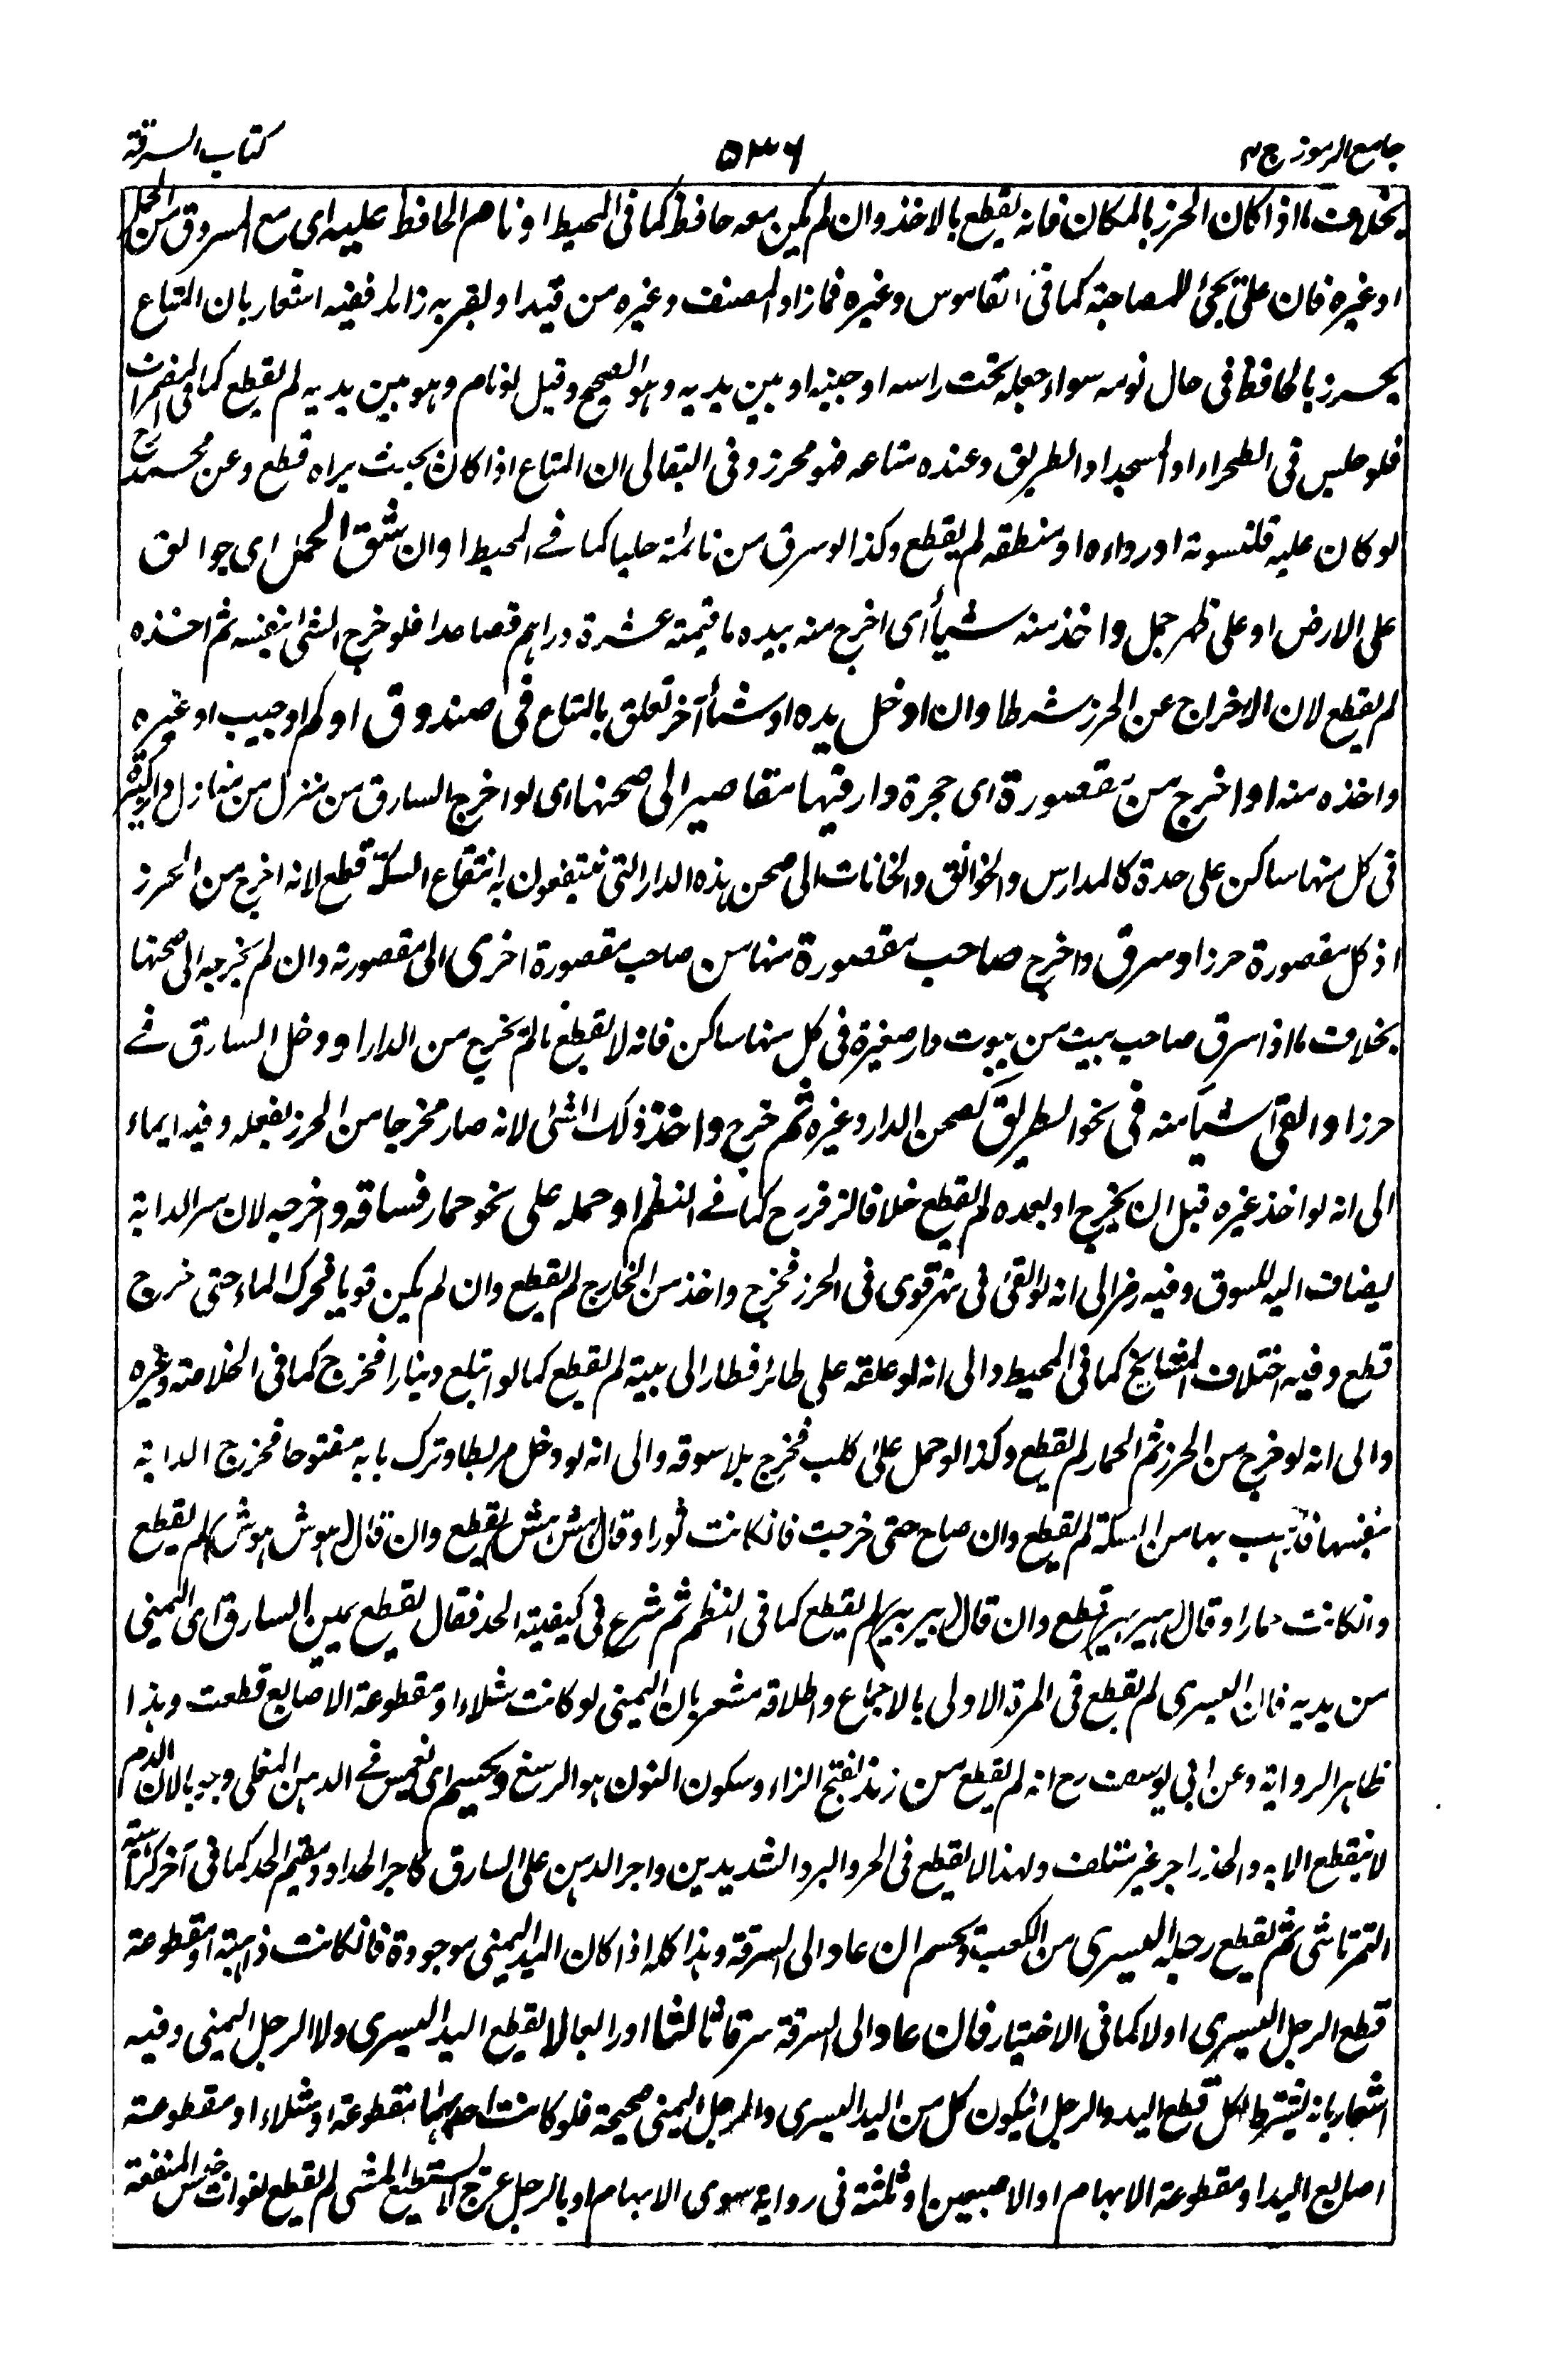 جامع الرموز ج ٢
٥٣٦
كتاب السرقة
بخلاف ما اذا كان الحرز بالمكان فانه يقطع بالاخذ وان لم يكن معه حافظ كما فى المحيط او نام الحافظ عليه اى مع المسروق من الحمل
او غيره فان على تجئ للمصاحبة كما فى القاموس وغيره فما زاد المصنف وغيره من قيد او بقربه زائد ففيه اشعار بان المتاع
يحرز بالحافظ فى حال نومه سواء جعله تحت راسه او جنبه او بين يديه وهو الصحيح وقيل لو نام وهو بين يديه لم يقطع كما فى المضمرات
فلو جلس فى الصحراء او المسجد او الطريق وعنده متاعه فهو محرز وفى البقالى ان المتاع اذا كان بحيث يراه قطع وعن محمد رح
لو كان عليه قلنسوته او رداءه او منطقه لم يقطع وكذا لو سرق من نائمة حليا كما فى المحيط او ان شق الحمل اى جوالق
على الارض او على ظهر جمل واخذ منه شيأ اى اخرج منه بيده ما قيمته عشرة دراهم فصاعدا فلو خرج الشئ بنفسه ثم اخذه
لم يقطع لان الاخراج عن الحرز شرط او ان ادخل يده او شيأ آخر تعلق بالمتاع فى صندوق او كم او جيب او غيره
واخذه منه او اخرج من مقصورة اى حجرة دار فيها مقاصير الى صحنها اى لو اخرج السارق من منزل من منازل دار كبيرة
فى كل منها ساكن على حدة كالمدارس والخوانق والخانات الى صحن هذه الدار التى ينتفعون به انتفاع السكة قطع لانه اخرج من الحرز
اذ كل مقصورة حرز او سرق واخرج صاحب مقصورة منها من صاحب مقصورة اخرى الى مقصورته وان لم يخرجه الى صحنها
بخلاف ما اذا سرق صاحب بيت من بيوت دار صغيرة فى كل منها ساكن فانه لا يقطع ما لم يخرج من الدار او دخل السارق فى
حرز او القى شيأ منه فى نحو الطريق كصحن الدار وغيره ثم خرج واخذ ذلك الشئ لانه صار مخرجا من الحرز بفعله وفيه ايماء
الى انه لو اخذ غيره قبل ان يخرج او بعده لم يقطع خلافا لزفر رح كما فى النظم او حمله على نحو حمار فساقه واخرجه لان سير الدابة
يضاف اليه للسوق وفيه رمز الى انه لو القى فى نهر قوى فى الحرز فخرج واخذ من الخارج لم يقطع وان لم يكن قويا فحرك الماء حتى خرج
قطع وفيه اختلاف المشايخ كما فى المحيط والى انه لو علقه على طائر فطار الى بيته لم يقطع كما لو ابتلع دينارا فخرج كما فى الخلاصة وغيره
والى انه لو خرج من الحرز ثم الحمار لم يقطع وكذا لو حمل على كلب فخرج بلا سوقه والى انه لو دخل مربطا وترك بابه مفتوحا فخرج الدابة
بنفسها فذهب بها من السكة لم يقطع وان صاح حتى خرجت فان كانت ثورا وقال (مش مش) يقطع وان قال (هوش هوش) لم يقطع
وان كانت حمارا وقال (هير هير) قطع وان قال (بير بير) لم يقطع كما فى النظم ثم شرع فى كيفية الحد فقال يقطع يمين السارق اى اليمنى
من يديه فان اليسرى لم يقطع فى المرة الاولى بالاجماع واطلاقه مشعر بان اليمنى لو كانت شلاء او مقطوعة الاصابع قطعت وهذا
ظاهر الرواية وعن ابى يوسف رح انه لم يقطع من زند بفتح الزاء وسكون النون هو الرسغ ويحسم اى يغمس فى الدهن المغلى وجوبا لان الدم
لا ينقطع الا به والحد زاجر غير متلف ولهذا لا يقطع فى الحر والبرد الشديدين واجر الدهن على السارق كاجر الحداد ومقيم الحد كما فى آخر كراسته
التمرتاشى ثم يقطع رجله اليسرى من الكعب ويحسم ان عاد الى السرقة وهذا كله اذا كان اليد اليمنى موجودة فان كانت ذاهبة او مقطوعة
قطع الرجل اليسرى اولا كما فى الاختيار فان عاد الى السرقة سرق ثالثا او رابعا لا يقطع اليد اليسرى ولا الرجل اليمنى وفيه
اشعار بانه يشترط لكل قطع اليد والرجل ان يكون كل من اليد اليسرى والرجل اليمنى صحيحة فلو كانت احدهما مقطوعة او شلاء او مقطوعة
اصابع اليد او مقطوعة الابهام او الاصبعين او ثلثة فى رواية سوى الابهام او بالرجل عرج لا يستطيع المشى لم يقطع لفوات جنس المنفعة